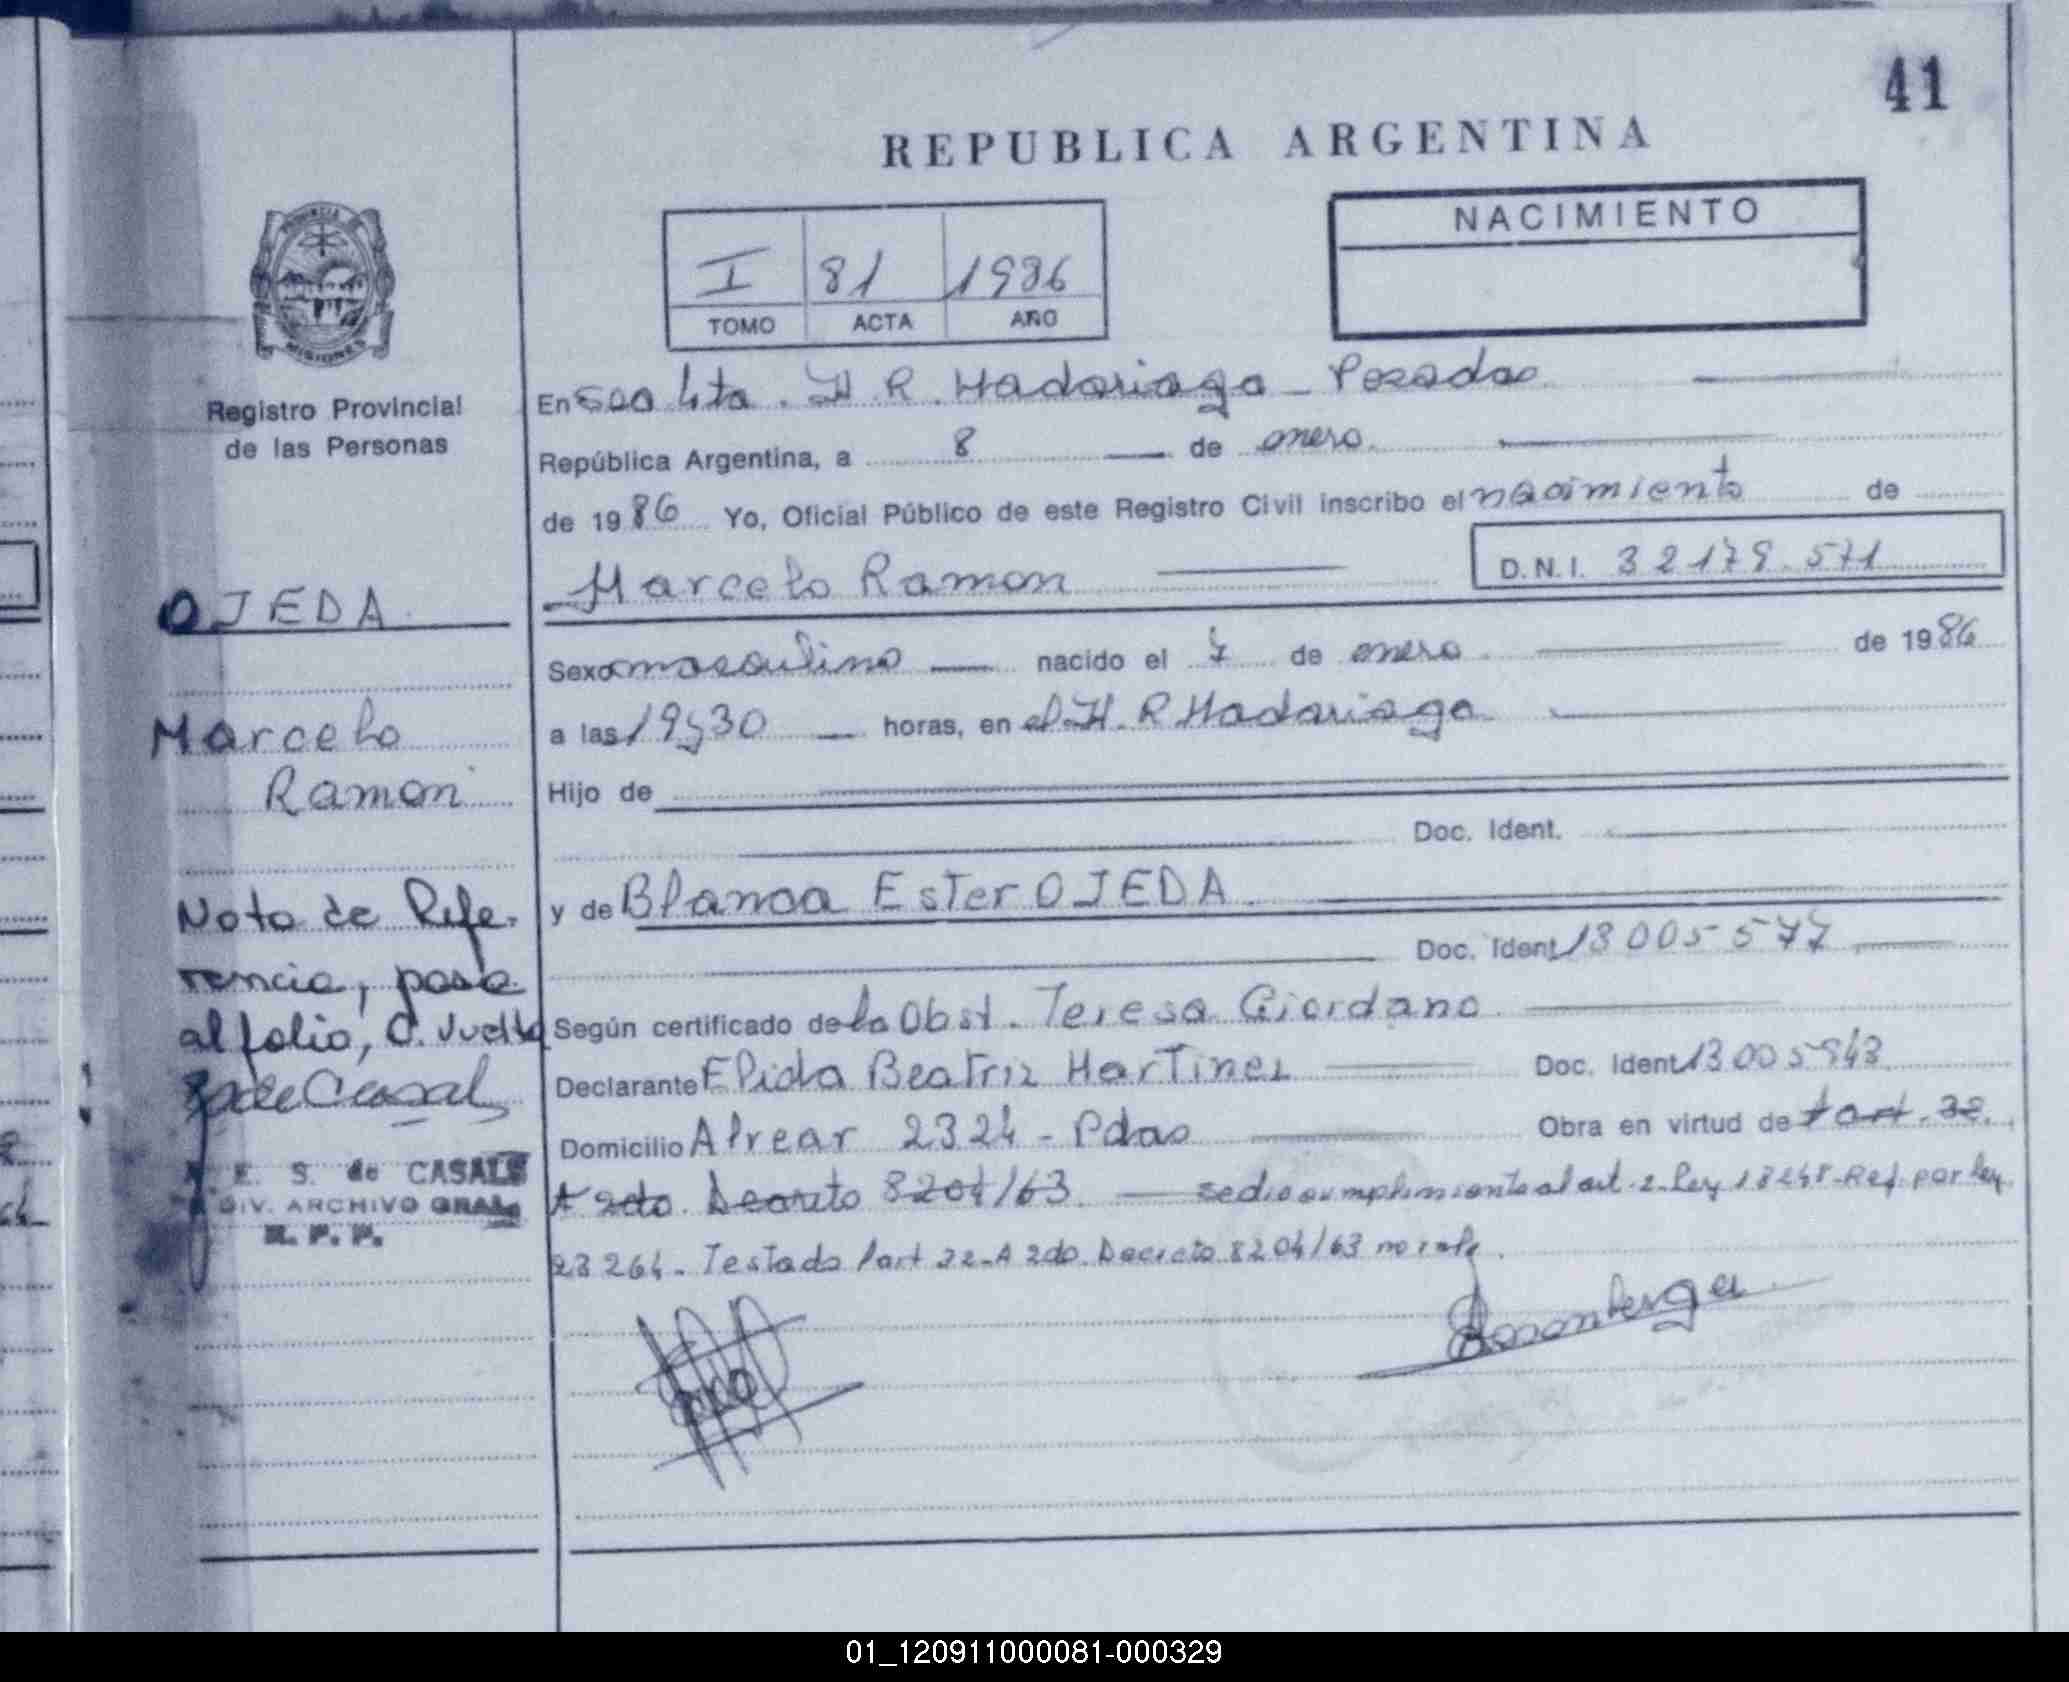 41
REPUBLICA ARGENTINA
NACIMIENTO
I 81 1986
TOMO ACTA AÑO
PROVINCIA
MISIONES
Registro Provincial
de las Personas
OJEDA
Marcelo
Ramon
Nota de Refe-
rencia, pasa
al folio, C. Vuelta
S. de Casals
E. S. de CASALS
DIV. ARCHIVO GRAL.
R. P. P.
En Secc 4ta. H. R. Madariaga - Posadas
República Argentina, a 8 de enero
de 1986 Yo, Oficial Público de este Registro Civil inscribo el nacimiento de
Marcelo Ramon D.N.I. 32179.571
Sexo masculino nacido el 7 de enero de 1986
a las 19,30 horas, en el H. R Madariaga
Hijo de
Doc. Ident.
y de Blanca Ester OJEDA
Doc. Ident. 13005577
Según certificado de la Obst. Teresa Giordano
Declarante Elida Beatriz Martinez Doc. Ident. 13005943
Domicilio Alvear 2324 - Pdas Obra en virtud de l art. 32.
A 2do. Decreto 8204/63 se dio cumplimiento al art. 2 Ley 18248 - Ref. por ley
23264 - Testado l art 32 - A 2do. Decreto 8204/63 no vale.
01_120911000081-000329